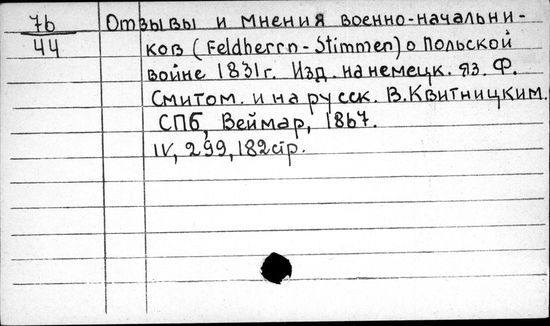 76
44
Отзывы и мнения военно-начальни-
ков (Feldherrn-Stimmen) о Польской
войне 1831г. Изд. на немецк. яз. Ф.
Смитом. и на русск. В. Квитницким.
СПб, Веймар, 1867.
IV, 299, 182 стр.